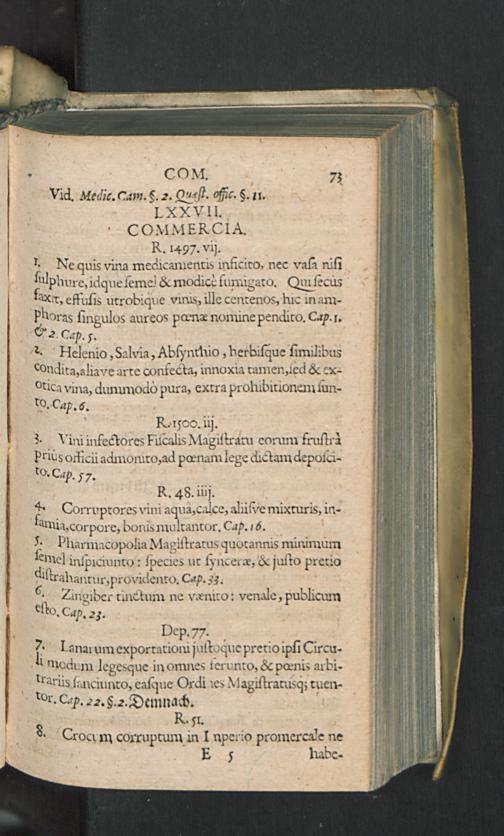 COM. 73
Vid. Medic. Cam. §. 2. Quæst. offic. §. 11.
LXXVII.
COMMERCIA.
R. 1497. vij.
1. Ne quis vina medicamentis inficito, nec vasa nisi
sulphure, idque semel & modicè fumigato. Qui secus
faxit, effusis utrobique vinis, ille centenos, hic in am-
phoras singulos aureos pœnæ nomine pendito. Cap. 1.
& 2. Cap. 5.
2. Helenio, Salvia, Absynthio, herbisque similibus
condita, aliave arte confecta, innoxia tamen, sed & ex-
otica vina, dummodò pura, extra prohibitionem sun-
to. Cap. 6.
R. 1500. iij.
3. Vini infectores Fiscalis Magistratu eorum frustrà
prius officii admonito, ad pœnam lege dictam deposci-
to. Cap. 57.
R. 48. iiij.
4. Corruptores vini aqua, calce, aliisve mixturis, in-
famia, corpore, bonis multantor. Cap. 16.
5. Pharmacopolia Magistratus quotannis minimum
semel inspiciunto: species ut synceræ, & justo pretio
distrahantur, providento. Cap. 33.
6. Zingiber tinctum ne vænito: venale, publicum
esto. Cap. 23.
Dep. 77.
7. Lanarum exportationi justoque pretio ipsi Circu-
li modum legesque in omnes ferunto, & pœnis arbi-
trariis sanciunto, easque Ordines Magistratusq; tuen-
tor. Cap. 22. §. 2. Demnach.
R. 51.
8. Crocum corruptum in Imperio promercale ne
E 5 habe-